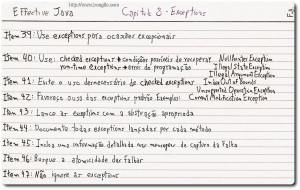 http://www.
Effective Java Capítulo 8 - Exceptions
Item 39: Use exceptions para ocasiões excepcionais
Item 40: Use: Checked exceptions → condições possíveis de recuperar NullPointer Exception
run-time exceptions → erros de programação IllegalState Exception
Illegal Argument Exception
Item 41: Evite o uso desnecessário de checked exceptions IndexOutOf Bounds
Unsupported Operation Exception
Item 42: Favoreça o uso das exceptions padrão Exemplos: Current Modification Exception
Item 43: Lance as exceptions com a abstração apropriada
Item 44: Documente todas exceptions lançadas por cada método
Item 45: Inclua uma informação detalhada nas mensagens de captura da falha
Item 46: Busque a atomicidade das falhas
Item 47: Não ignore as exceptions